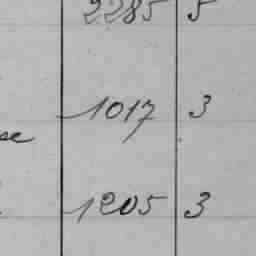 2285 5
1017 3
se
1205 3